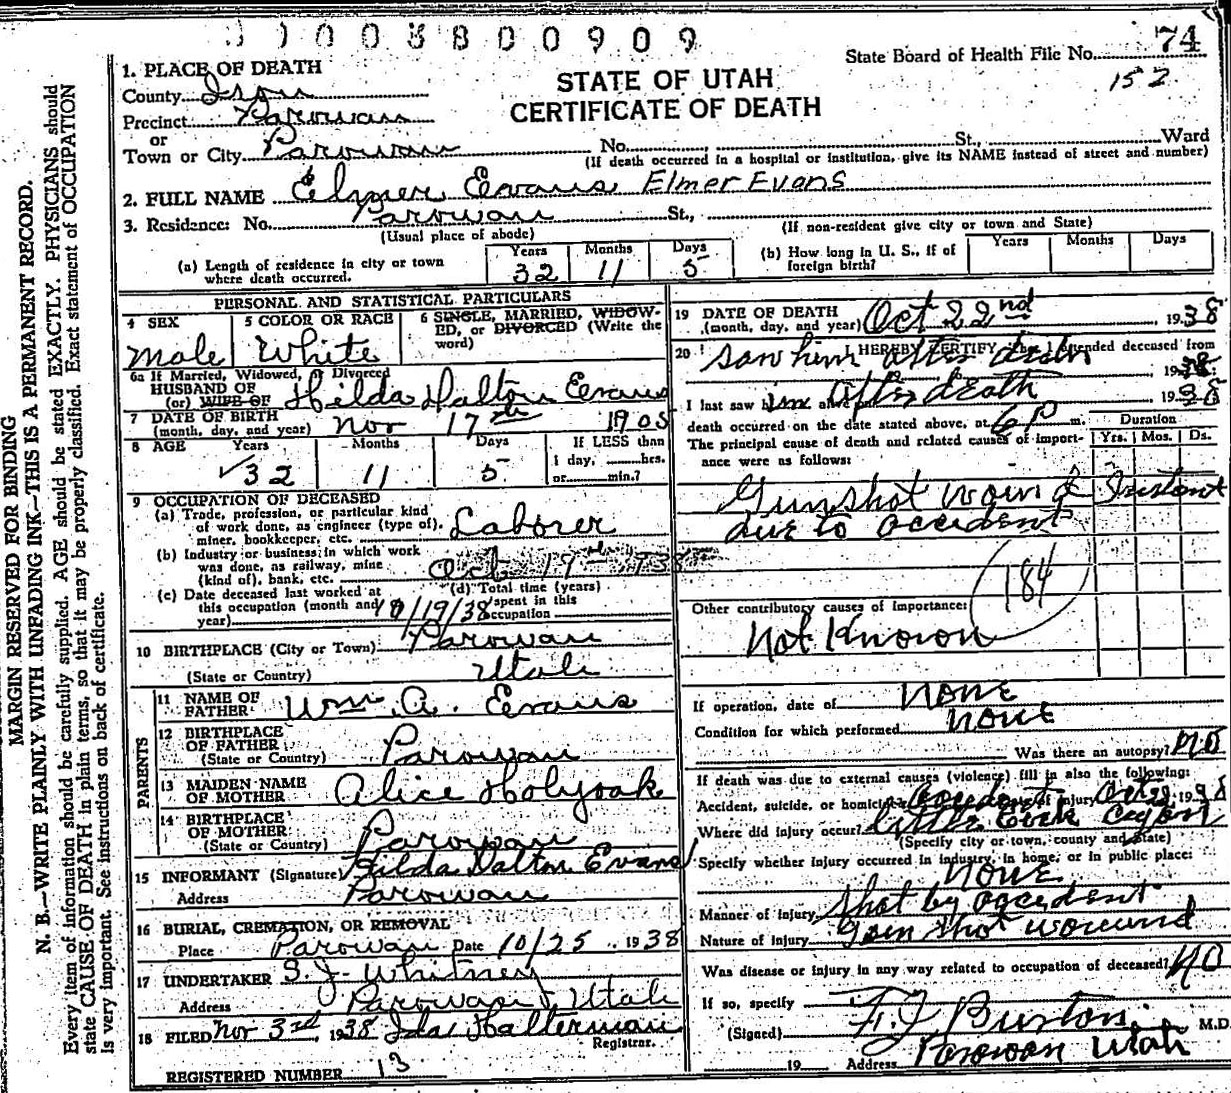 0 0 3 8 0 0 9 0 9
State Board of Health File No. 74
152
STATE OF UTAH
CERTIFICATE OF DEATH
1. PLACE OF DEATH
County Iron
Precinct Parowan
or
Town or City Parowan No. St., Ward
(If death occurred in a hospital or institution, give its NAME instead of street and number)
2. FULL NAME Elmer Evans Elmer Evans
3. Residence: No. Parowan St.,
(Usual place of abode) (If non-resident give city or town and State)
(a) Length of residence in city or town where death occurred. Years 32 Months 11 Days 5
(b) How long in U. S., if of foreign birth? Years Months Days
PERSONAL AND STATISTICAL PARTICULARS
4 SEX Male
5 COLOR OR RACE White
6 SINGLE, MARRIED, WIDOWED, or DIVORCED (Write the word)
6a If Married, Widowed, or Divorced
HUSBAND OF
(or) WIFE OF Hilda Dalton Evans
7 DATE OF BIRTH
(month, day, and year) Nov 17th 1905
8 AGE Years 32 Months 11 Days 5 If LESS than 1 day, hrs. or min.?
9 OCCUPATION OF DECEASED
(a) Trade, profession, or particular kind
of work done, as engineer (type of),
miner, bookkeeper, etc. Laborer
(b) Industry or business in which work
was done, as railway, mine
(kind of), bank, etc. Oct 19th 1938
(c) Date deceased last worked at
this occupation (month and year) 10/19/38
(d) Total time (years) spent in this occupation
10 BIRTHPLACE (City or Town) Parowan
(State or Country) Utah
PARENTS
11 NAME OF FATHER Wm. A. Evans
12 BIRTHPLACE OF FATHER
(State or Country) Parowan
13 MAIDEN NAME OF MOTHER Alice Holyoak
14 BIRTHPLACE OF MOTHER
(State or Country) Parowan
15 INFORMANT (Signature) Hilda Dalton Evans
Address Parowan
16 BURIAL, CREMATION, OR REMOVAL
Place Parowan Date 10/25 1938
17 UNDERTAKER S. J. Whitney
Address Parowan, Utah
18 FILED Nov 3rd, 1938 Ida Halterman
Registrar.
REGISTERED NUMBER 13
19 DATE OF DEATH
(month, day, and year) Oct 22nd 1938
20 I HEREBY CERTIFY, That I attended deceased from
saw him after death 1938
I last saw him alive on after death 1938
death occurred on the date stated above, at 6 P m.
The principal cause of death and related causes of importance were as follows:
Duration Yrs. Mos. Ds.
Gunshot wound Instant
due to accident
184
Other contributory causes of importance:
Not Known
If operation, date of None
Condition for which performed None
Was there an autopsy? no
If death was due to external causes (violence) fill in also the following:
Accident, suicide, or homicide? accident Date of injury Oct 22, 1938
Where did injury occur? Little Creek Canyon
(Specify city or town, county and State)
Specify whether injury occurred in industry, in home, or in public place:
None
Manner of injury Shot by accident
Nature of injury Gun shot wound
Was disease or injury in any way related to occupation of deceased? NO
If so, specify
(Signed) F. J. Burton, M.D.
19 Address Parowan Utah
MARGIN RESERVED FOR BINDING
N. B.—WRITE PLAINLY WITH UNFADING INK—THIS IS A PERMANENT RECORD.
Every item of information should be carefully supplied. AGE should be stated EXACTLY. PHYSICIANS should
state CAUSE OF DEATH in plain terms, so that it may be properly classified. Exact statement of OCCUPATION
is very important. See instructions on back of certificate.